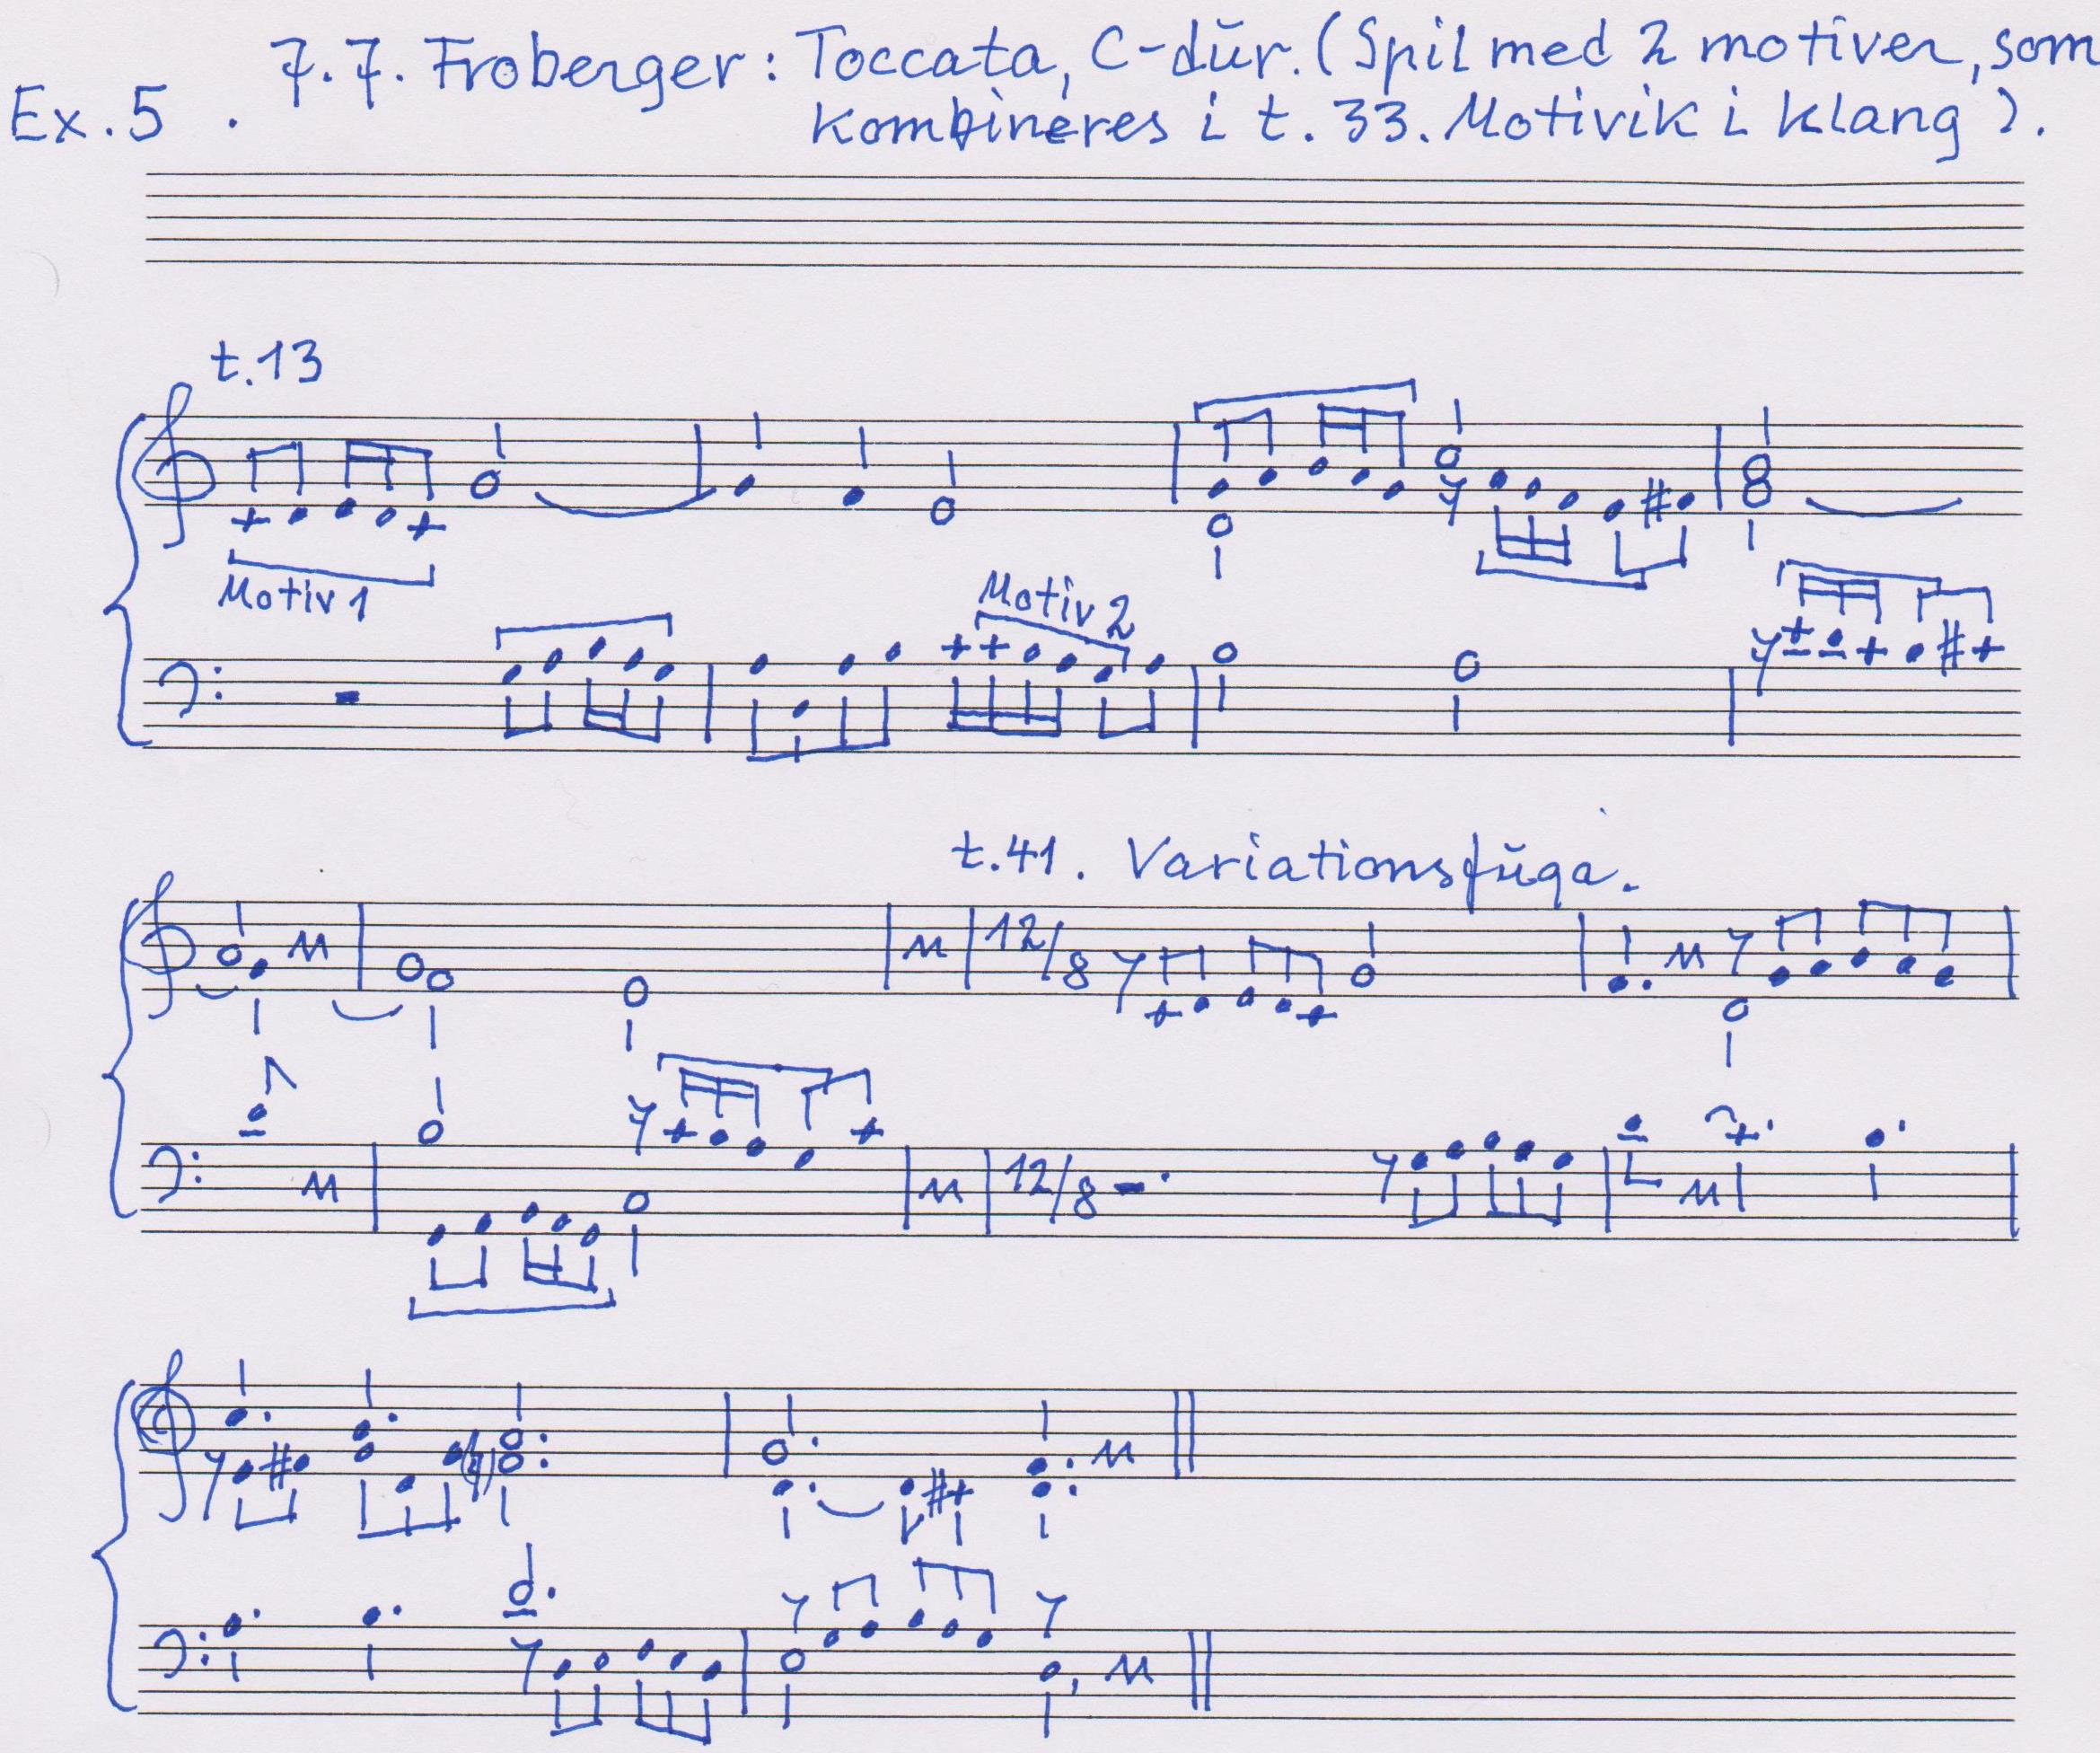 Ex. 5 . J. J. Froberger: Toccata, C-dŭr. (Spil med 2 motiver, som
kombineres i t. 33. Motivik i klang).
t.13
Motiv 1
Motiv 2
t.41. Variationsfŭga.
12/8
12/8